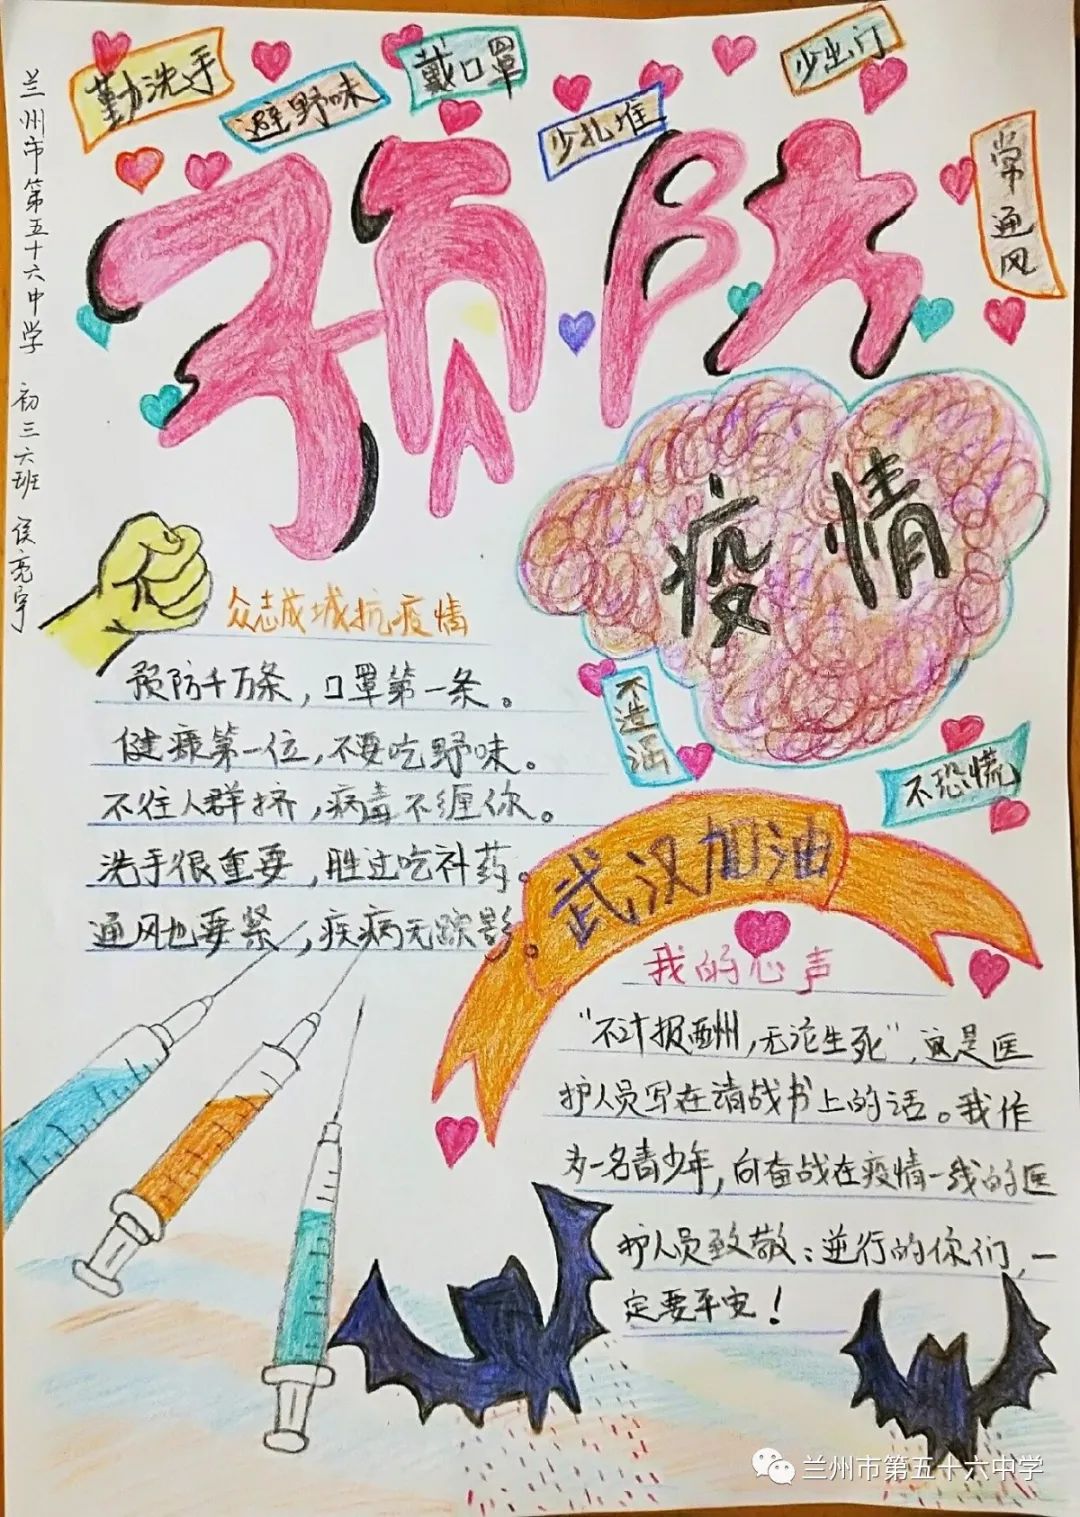 勤洗手
避野味
戴口罩
少扎堆
少出门
常通风
兰州市第五十六中学 初三六班 侯亮宇
预防
疫情
众志成城抗疫情
预防千万条，口罩第一条。
健康第一位，不要吃野味。
不往人群挤，病毒不缠你。
洗手很重要，胜过吃补药。
通风也要紧，疾病无踪影。
不造谣
不恐慌
武汉加油
我的心声
“不计报酬，无论生死”，这是医
护人员写在请战书上的话。我作
为一名青少年，向奋战在疫情一线的医
护人员致敬：逆行的你们，一
定要平安！
兰州市第五十六中学